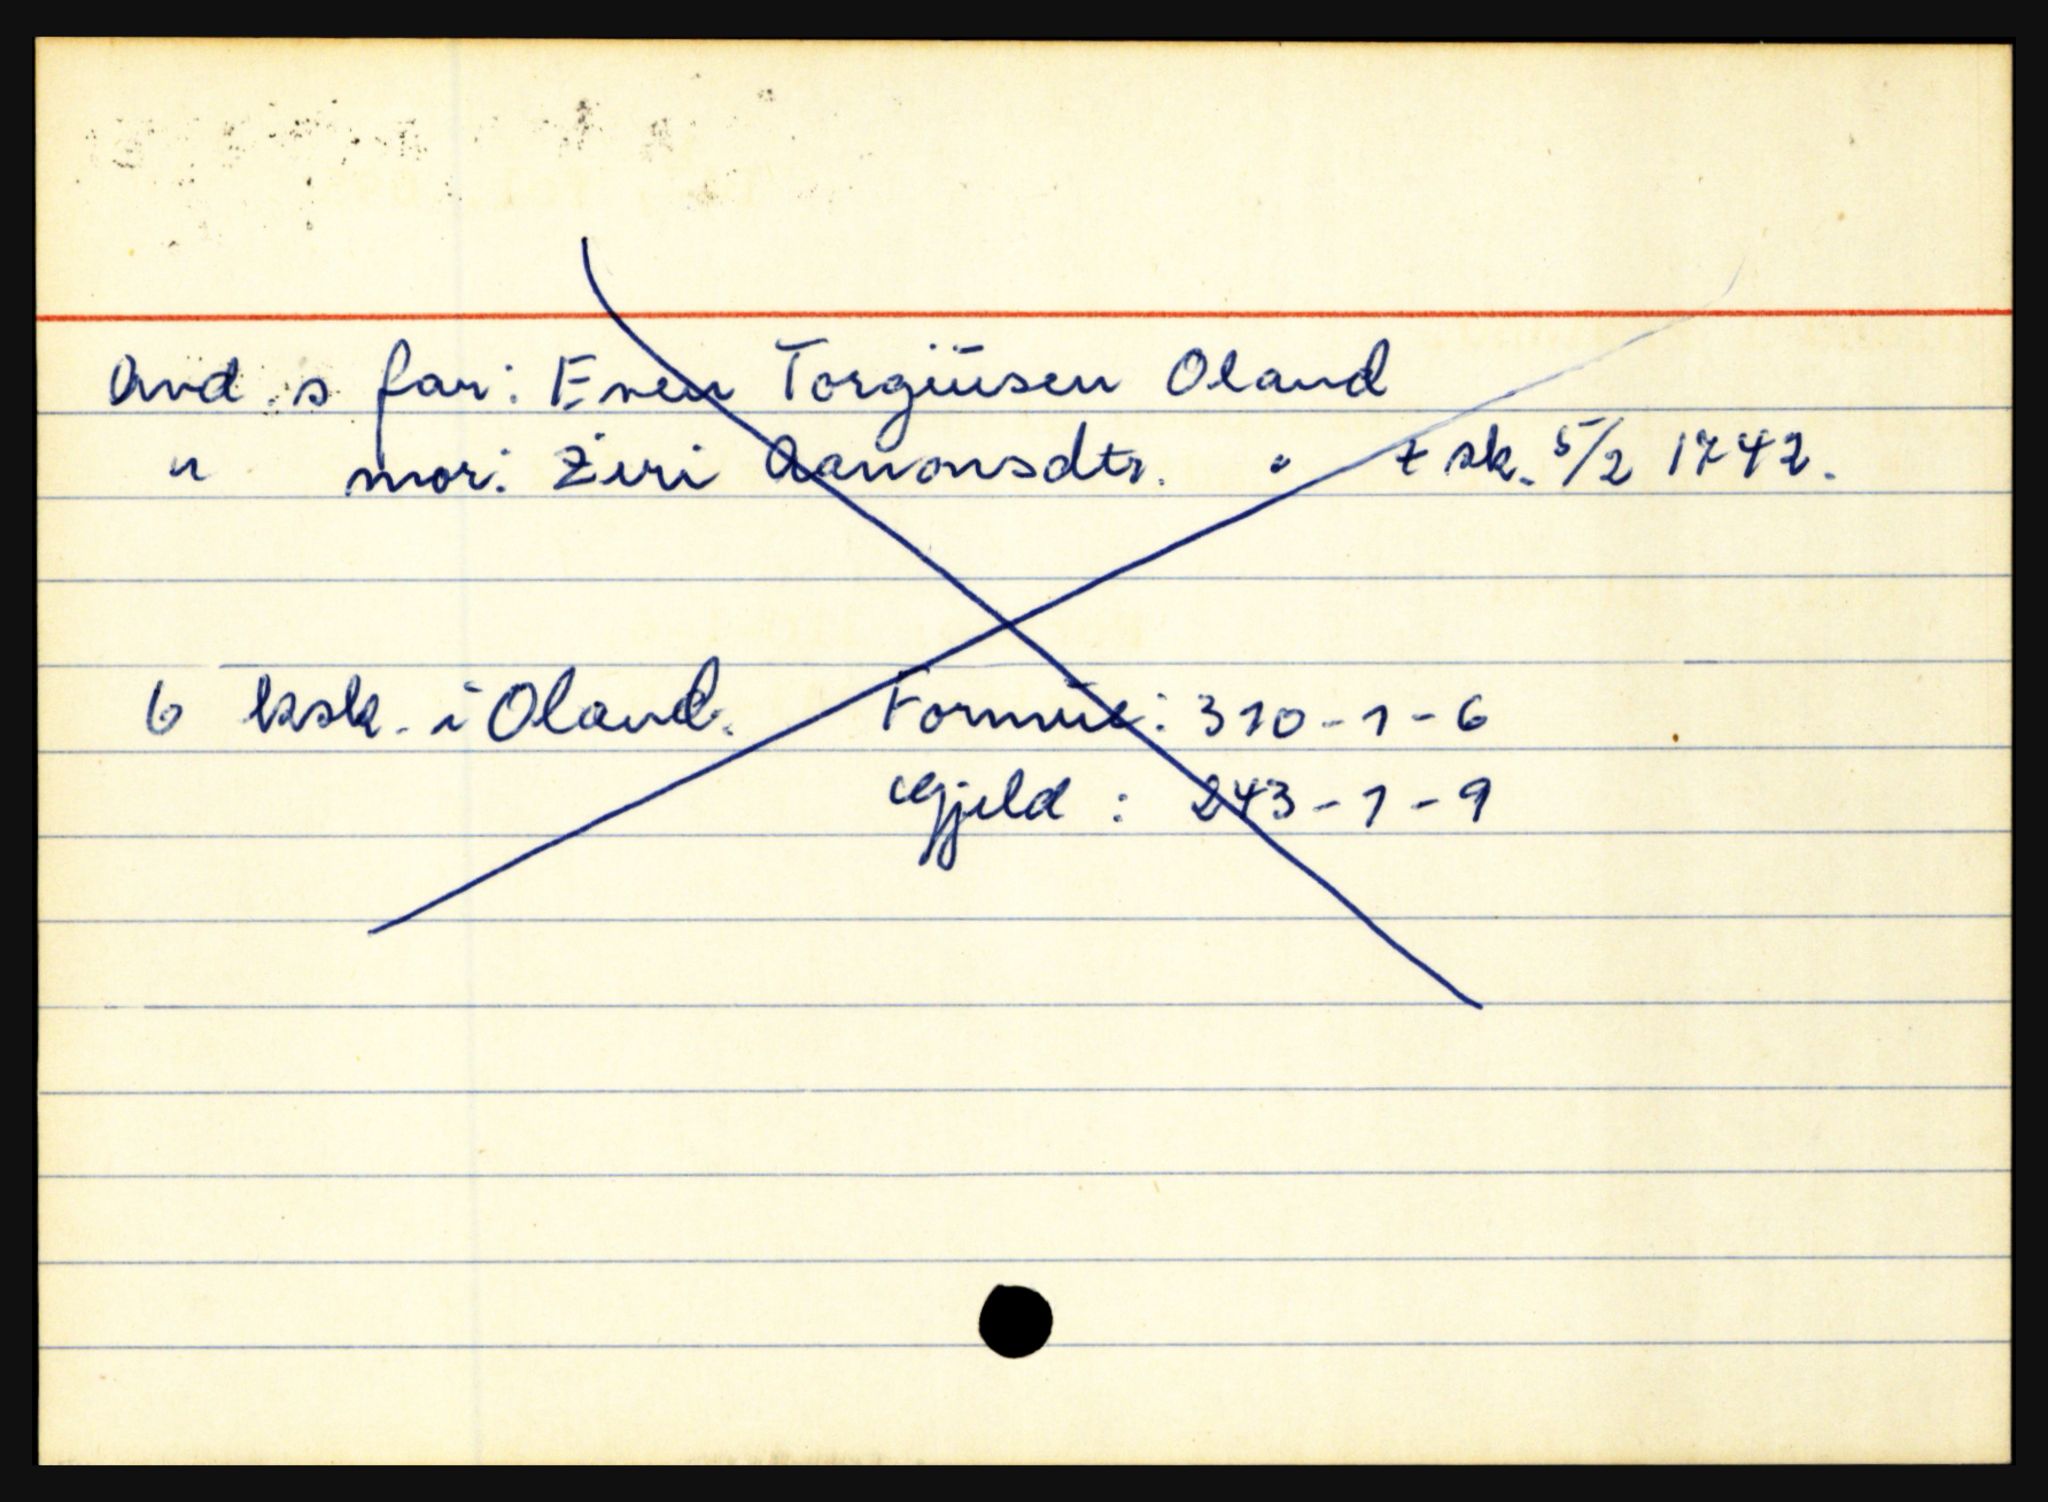 And s far: Even Torgiusen Oland
" mor: Ziri Aanonsdtr. t sk. 5/2 1742.
6 ksk. i Oland. Formue: 310-1-6
Gjeld : 243-1-9